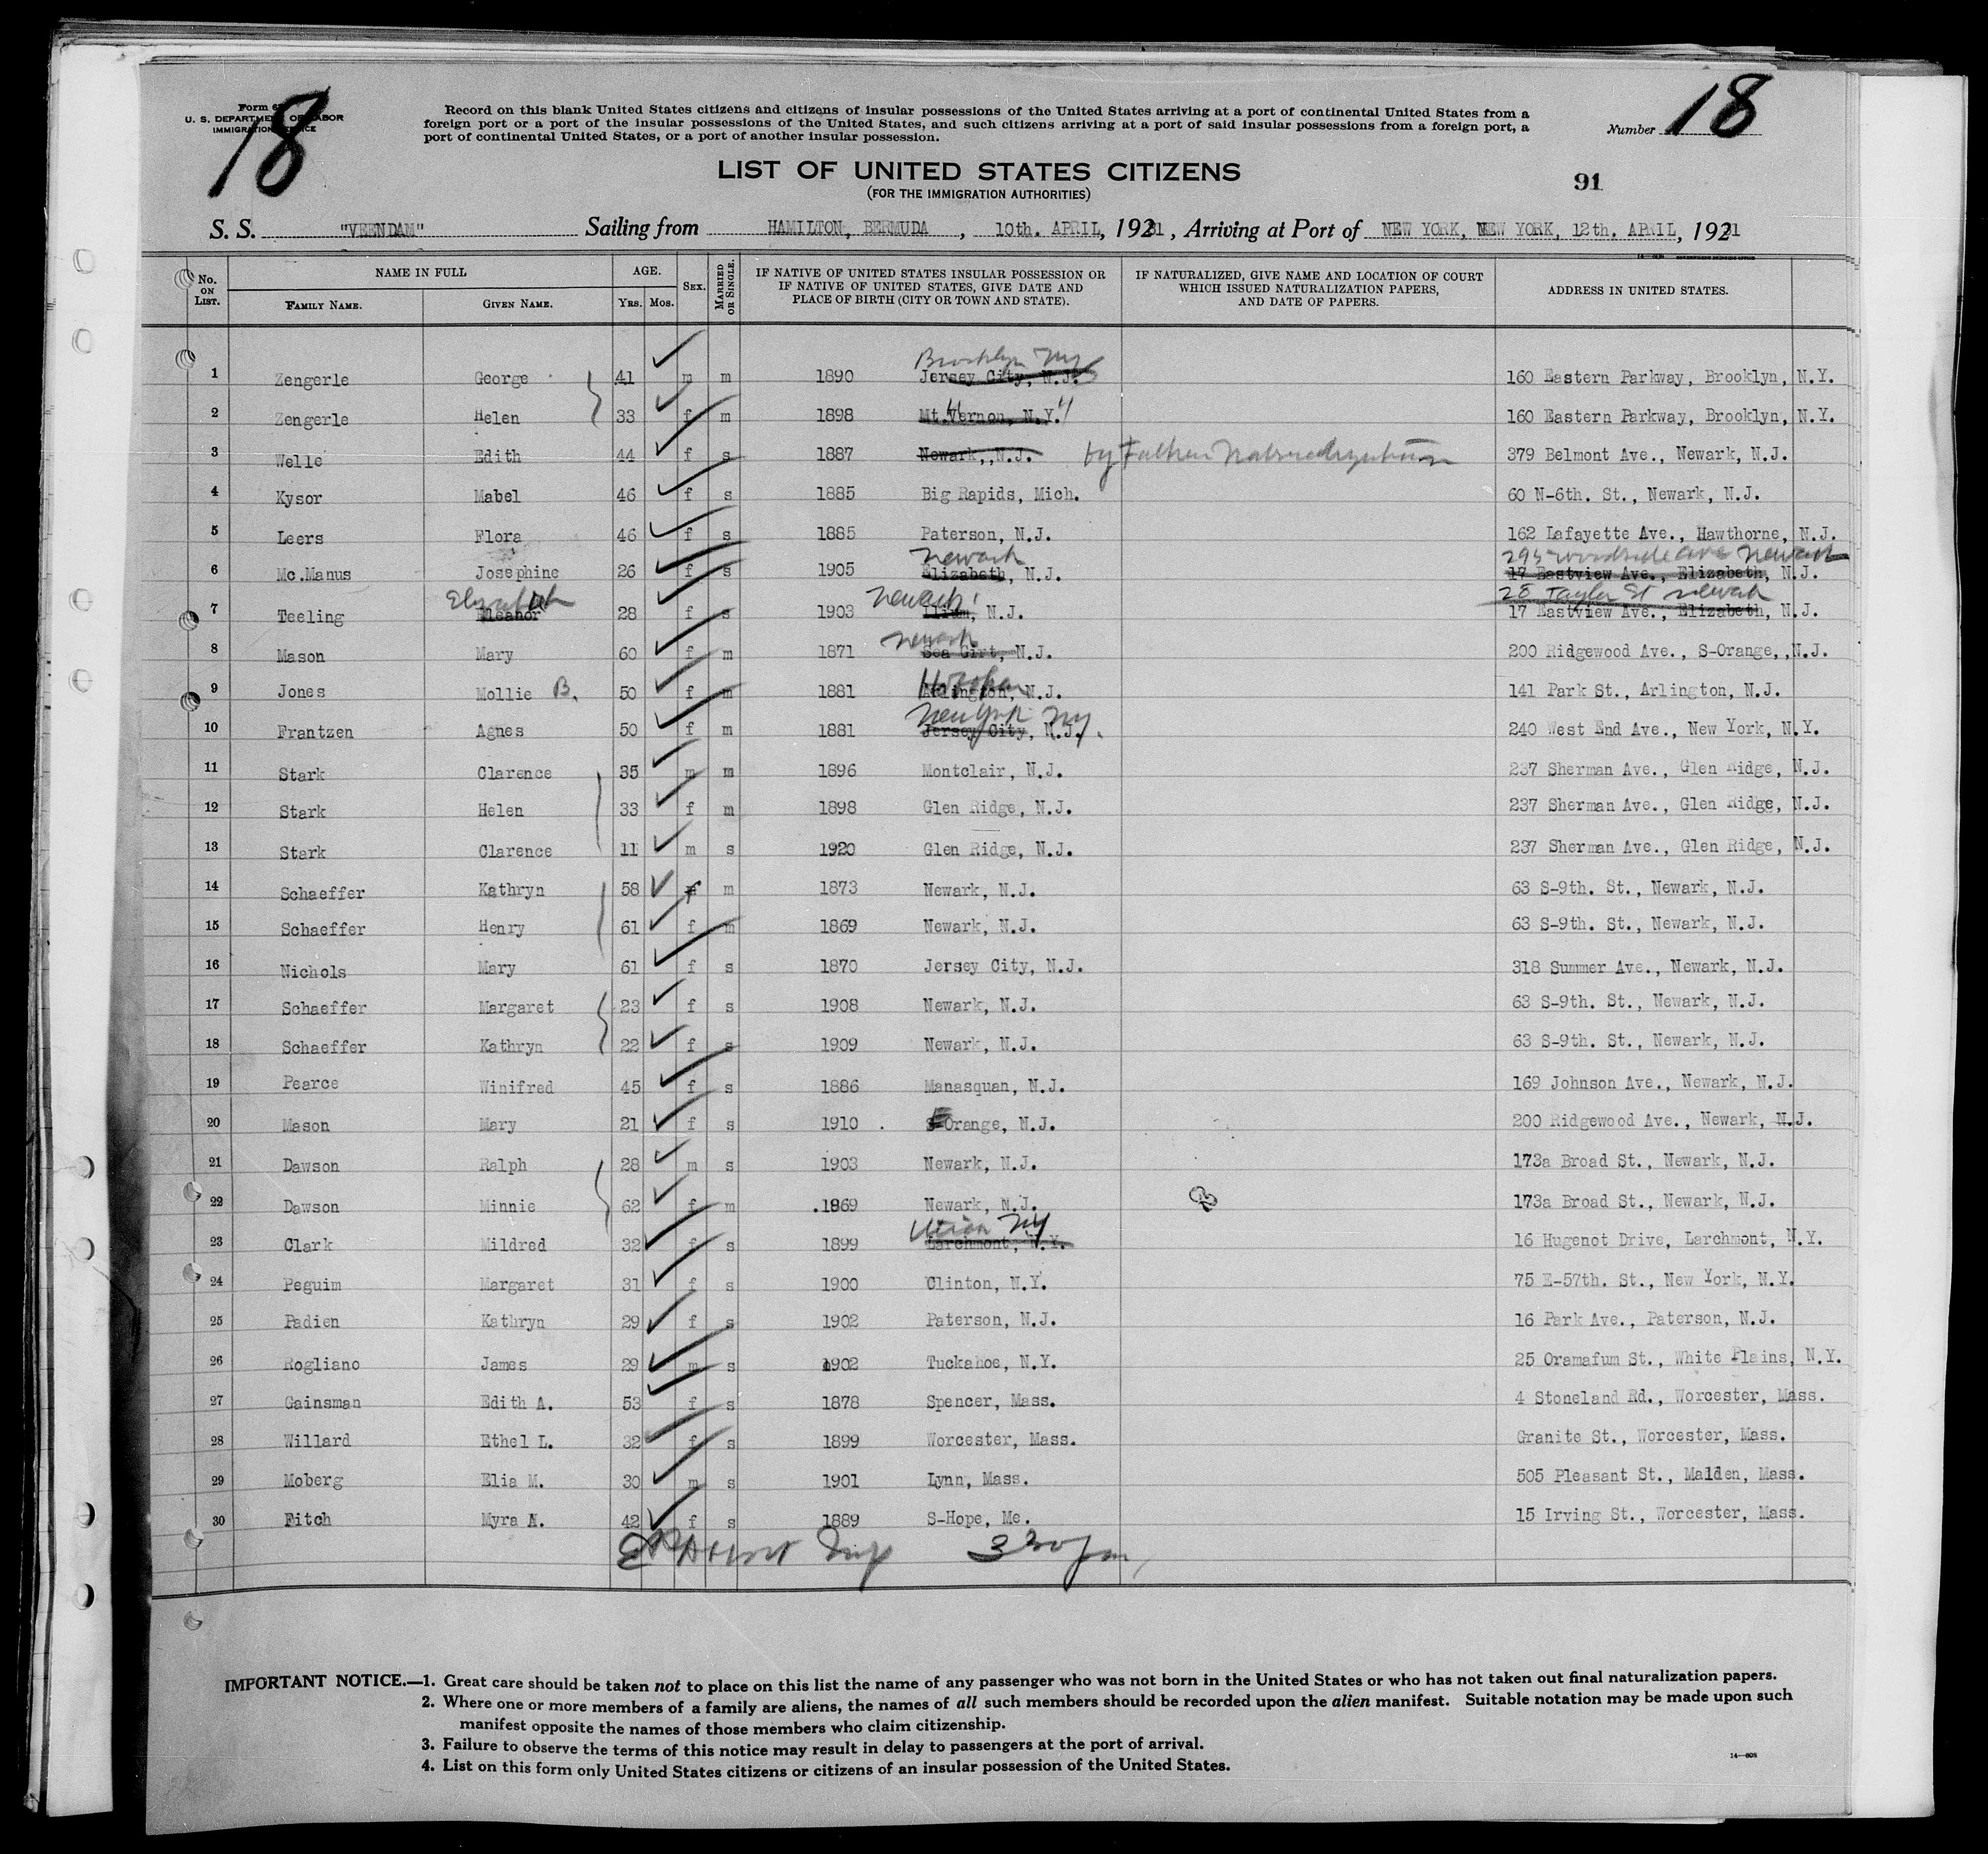 18
Form 6
U. S. DEPARTMENT OF LABOR
IMMIGRATION SERVICE
Record on this blank United States citizens and citizens of insular possessions of the United States arriving at a port of continental United States from a
foreign port or a port of the insular possessions of the United States, and such citizens arriving at a port of said insular possessions from a foreign port, a
port of continental United States, or a port of another insular possession.
Number 18
LIST OF UNITED STATES CITIZENS
(FOR THE IMMIGRATION AUTHORITIES)
91
S. S. "VEENDAM" Sailing from HAMILTON, BERMUDA, 10th. APRIL, 1931, Arriving at Port of NEW YORK, NEW YORK, 12th. APRIL, 1931
No. ON LIST. NAME IN FULL FAMILY NAME. GIVEN NAME. AGE. YRS. MOS. SEX. MARRIED OR SINGLE. IF NATIVE OF UNITED STATES INSULAR POSSESSION OR IF NATIVE OF UNITED STATES, GIVE DATE AND PLACE OF BIRTH (CITY OR TOWN AND STATE). IF NATURALIZED, GIVE NAME AND LOCATION OF COURT WHICH ISSUED NATURALIZATION PAPERS, AND DATE OF PAPERS. ADDRESS IN UNITED STATES.
Brooklyn NY
1 Zengerle George 41 m m 1890 Jersey City, N.J. 160 Eastern Parkway, Brooklyn, N.Y.
2 Zengerle Helen 33 f m 1898 Mt.Vernon, N.Y. 160 Eastern Parkway, Brooklyn, N.Y.
3 Welle Edith 44 f s 1887 Newark,,N.J. by Father Naturalization 379 Belmont Ave., Newark, N.J.
4 Kysor Mabel 46 f s 1885 Big Rapids, Mich. 60 N-6th. St., Newark, N.J.
5 Leers Flora 46 f s 1885 Paterson, N.J. 162 Lafayette Ave., Hawthorne, N.J.
Newark 295 Woodside Ave Newark
6 Mc.Manus Josephine 26 f s 1905 Elizabeth, N.J. 17 Eastview Ave., Elizabeth, N.J.
Elizabeth Newark 28 Taylor St Newark
7 Teeling Eleanor 28 f s 1903 N.J. 17 Eastview Ave., Elizabeth, N.J.
Newark
8 Mason Mary 60 f m 1871 Sea Girt, N.J. 200 Ridgewood Ave., S-Orange,,N.J.
Hoboken
9 Jones Mollie B. 50 f m 1881 Arlington, N.J. 141 Park St., Arlington, N.J.
New York NY
10 Frantzen Agnes 50 f m 1881 Jersey City, N.J. 240 West End Ave., New York, N.Y.
11 Stark Clarence 35 m m 1896 Montclair, N.J. 237 Sherman Ave., Glen Ridge, N.J.
12 Stark Helen 33 f m 1898 Glen Ridge, N.J. 237 Sherman Ave., Glen Ridge, N.J.
13 Stark Clarence 11 m s 1920 Glen Ridge, N.J. 237 Sherman Ave., Glen Ridge, N.J.
14 Schaeffer Kathryn 58 f m 1873 Newark, N.J. 63 S-9th. St., Newark, N.J.
15 Schaeffer Henry 61 f m 1869 Newark, N.J. 63 S-9th. St., Newark, N.J.
16 Nichols Mary 61 f s 1870 Jersey City, N.J. 318 Summer Ave., Newark, N.J.
17 Schaeffer Margaret 23 f s 1908 Newark, N.J. 63 S-9th. St., Newark, N.J.
18 Schaeffer Kathryn 22 f s 1909 Newark, N.J. 63 S-9th. St., Newark, N.J.
19 Pearce Winifred 45 f s 1886 Manasquan, N.J. 169 Johnson Ave., Newark, N.J.
20 Mason Mary 21 f s 1910 E-Orange, N.J. 200 Ridgewood Ave., Newark, N.J.
21 Dawson Ralph 28 m s 1903 Newark, N.J. 173a Broad St., Newark, N.J.
22 Dawson Minnie 62 f m 1869 Newark, N.J. 173a Broad St., Newark, N.J.
Union NY
23 Clark Mildred 32 f s 1899 Larchmont, N.Y. 16 Hugenot Drive, Larchmont, N.Y.
24 Peguim Margaret 31 f s 1900 Clinton, N.Y. 75 E-57th. St., New York, N.Y.
25 Padien Kathryn 29 f s 1902 Paterson, N.J. 16 Park Ave., Paterson, N.J.
26 Rogliano James 29 m s 1902 Tuckahoe, N.Y. 25 Oramafum St., White Plains, N.Y.
27 Gainsman Edith A. 53 f s 1878 Spencer, Mass. 4 Stoneland Rd., Worcester, Mass.
28 Willard Ethel L. 32 f s 1899 Worcester, Mass. Granite St., Worcester, Mass.
29 Moberg Elia M. 30 m s 1901 Lynn, Mass. 505 Pleasant St., Malden, Mass.
30 Fitch Myra A. 42 f s 1889 S-Hope, Me. 15 Irving St., Worcester, Mass.
Insp 330 pm
IMPORTANT NOTICE.—1. Great care should be taken not to place on this list the name of any passenger who was not born in the United States or who has not taken out final naturalization papers.
2. Where one or more members of a family are aliens, the names of all such members should be recorded upon the alien manifest. Suitable notation may be made upon such
manifest opposite the names of those members who claim citizenship.
3. Failure to observe the terms of this notice may result in delay to passengers at the port of arrival.
4. List on this form only United States citizens or citizens of an insular possession of the United States.
14—608